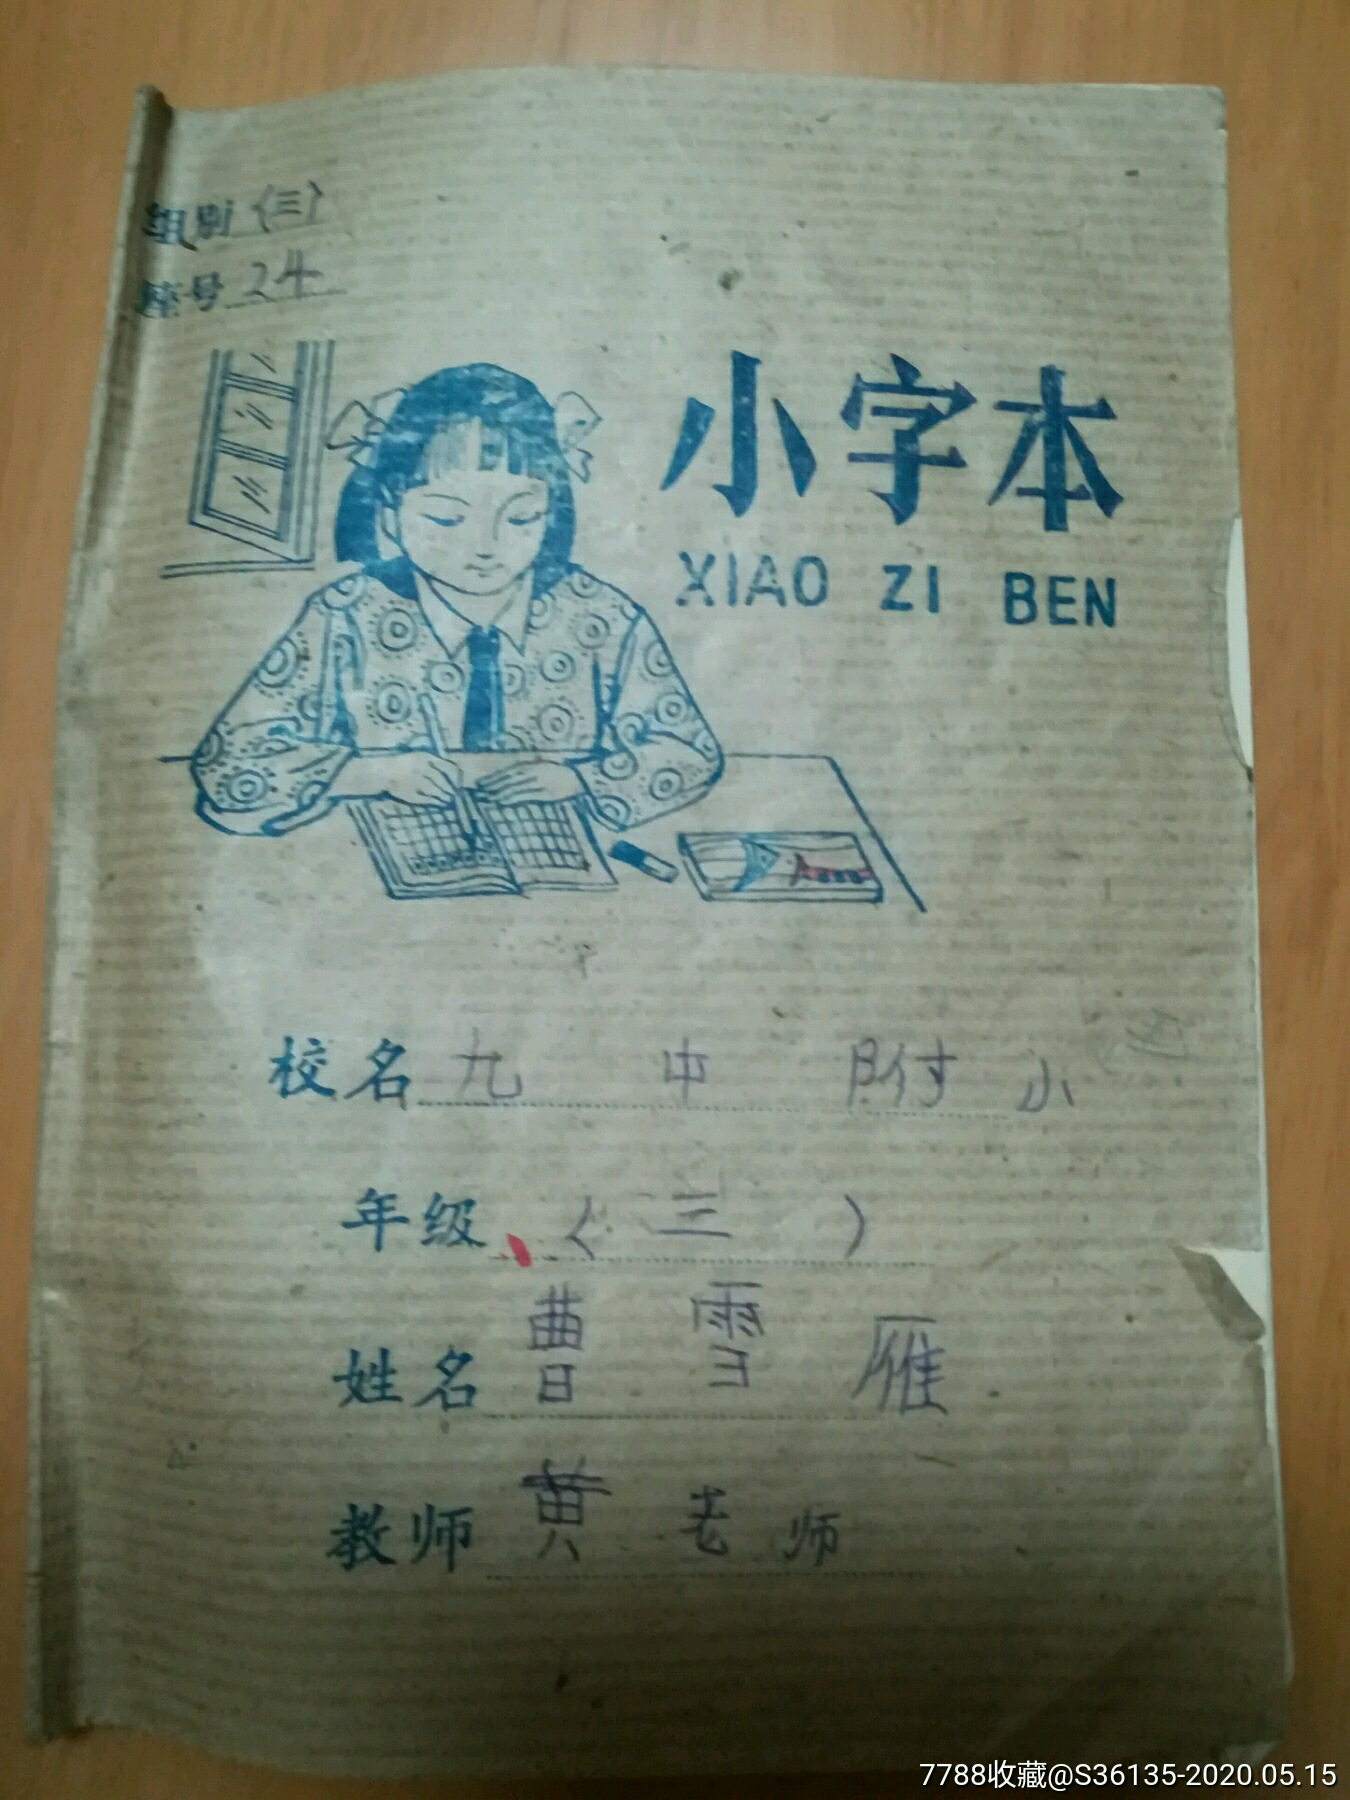 组别（三）
座号 24
小字本
XIAO ZI BEN
校名 九中附小
年级（三）
姓名 曹雪雁
教师 黄老师
7788收藏@S36135-2020.05.15